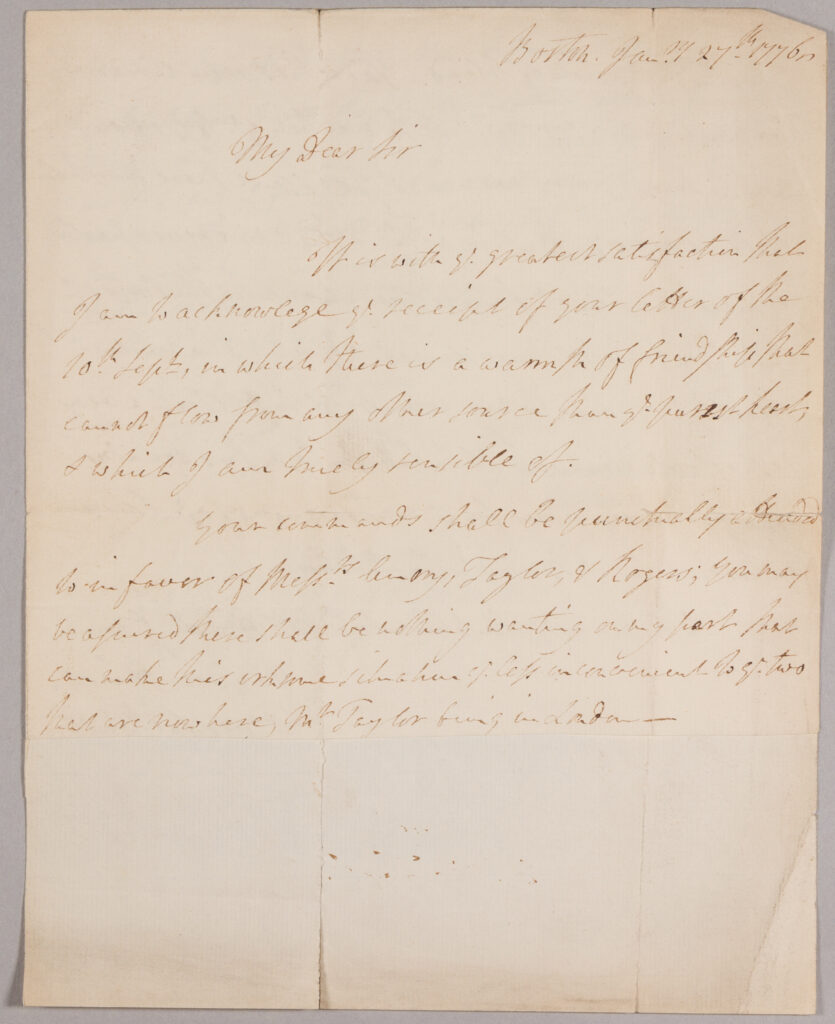 Boston. Jan.ry 27th 1776
My Dear Sir
It is with ye. greatest satisfaction that
I am to acknowlege ye. receipt of your letter of the
10th Sept., in which there is a warmth of friendship that
cannot flow from any other source than ye. purest heart,
& which I am truely sensible of.
Your commands shall be punctually attended
to in favor of Messrs. Taylor, & Rogers; you may
be assured there shall be nothing wanting on my part that
can make this irksome situation ye. less inconvenient to ye. two
that are now here, Mr. Taylor being in London—